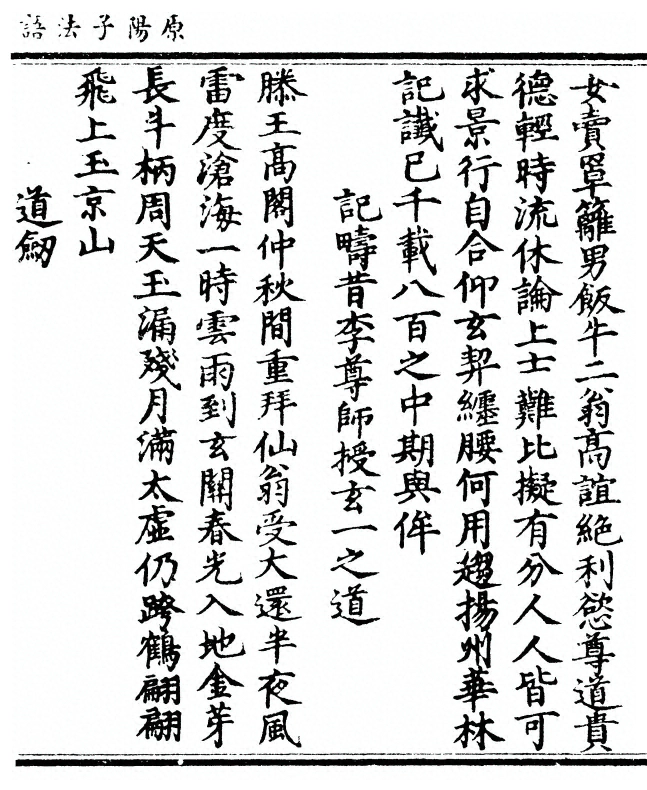 原陽子法語
女賣罩籬男飯牛二翁高誼絶利慾尊道貴
德輕時流休論上士難比擬有分人人皆可
求景行自合仰玄契纏腰何用趨揚州華林
記讖已千載八百之中期與侔
記疇昔李尊師授玄一之道
滕王高閣仲秋間重拜仙翁受大還半夜風
雷度滄海一時雲雨到玄關春光入地金芽
長斗柄周天玉漏殘月滿太虛仍跨鶴翩翩
飛上玉京山
道劒